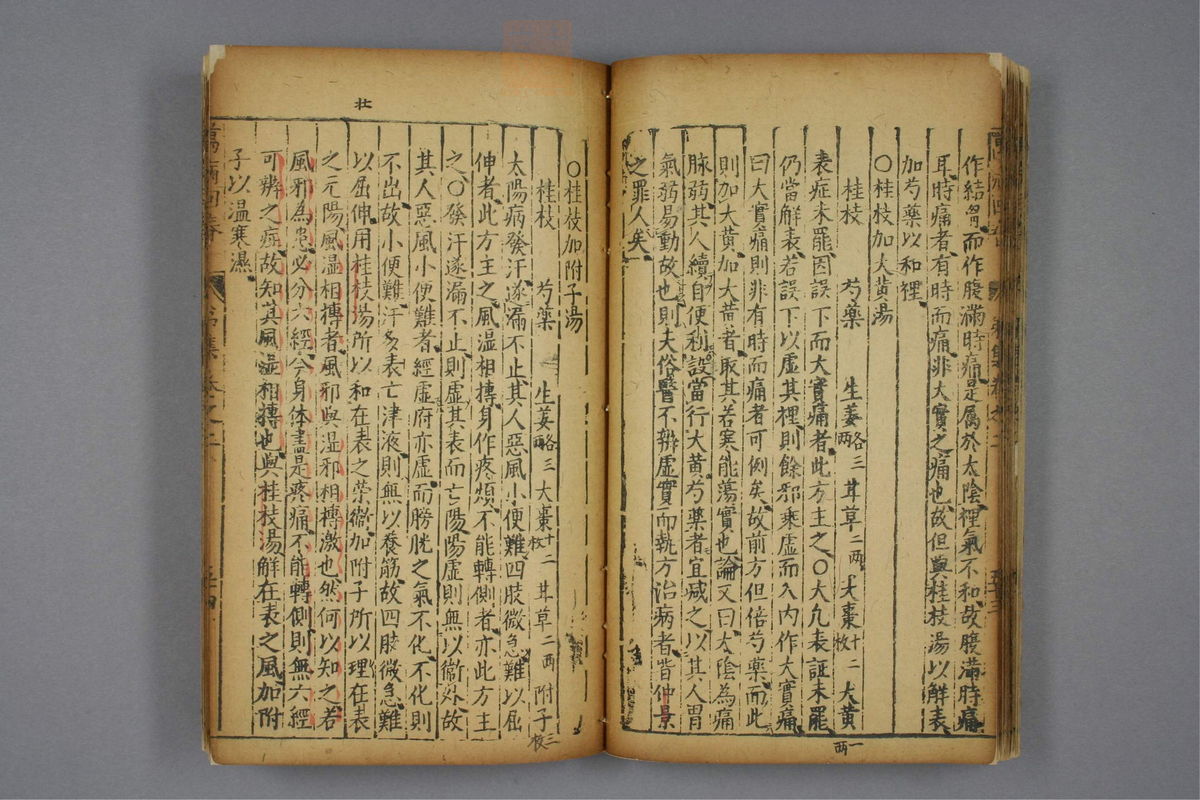 作結胷而作腹滿時痛是屬於太陰裡氣不和故腹滿時痛
耳時痛者有時而痛非大實之痛也故但與桂枝湯以解表
加芍藥以和裡
〇桂枝加大黃湯
桂枝 芍藥 生姜各三兩 耳草二兩 大棗十二枚 大黃一兩
表症未罷因誤下而大實痛者此方主之〇大凢表証未罷
仍當解表若誤下以虛其裡則餘邪乘虛而入內作大實痛
曰大實痛則非有時而痛者可例矣故前方但倍芍藥而此
則加大黃加大黃者取其若寒能蕩實也論又曰太陰為痛
脉弱其人續自便利設當行大黃芍藥者宜減之以其人胃
氣弱易動故也則夫俗醫不辨虛實而執方治病者皆仲景
之罪人矣
壮
〇桂枝加附子湯
桂枝 芍藥 生姜各三兩 大棗十二枚 耳草二兩 附子三枚
太陽病發汗遂漏不止其人惡風小便難四肢微急難以屈
伸者此方主之風温相摶身作疼煩不能轉側者亦此方主
之〇發汗遂漏不止則虛其表而亡陽陽虛則無以衞外故
其人惡風小便難者經虛府亦虛而膀胱之氣不化不化則
不出故小便難汗多表亡津液則無以養筋故四肢微急難
以屈伸用桂枝湯所以和在表之榮衞加附子所以理在表
之元陽風温相摶者風邪與温邪相摶激也然何以知之若
風邪為患必分六經今身体盡是疼痛不能轉側則無六經
可辨之症故知其風湿相摶也與桂枝湯解在表之風加附
子以温寒濕